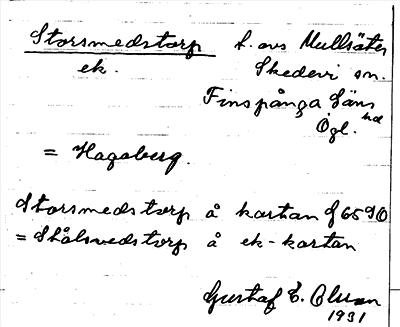 Storsmedstorp f. avs Mullsäter
ek. Skedevi sn.
Finspånga läns hd
Ögl.
= Hagaberg.
Storsmedstorp å kartan f 6590
= Stålsvedstorp å ek-kartan
Gustaf E. Olsson
1931